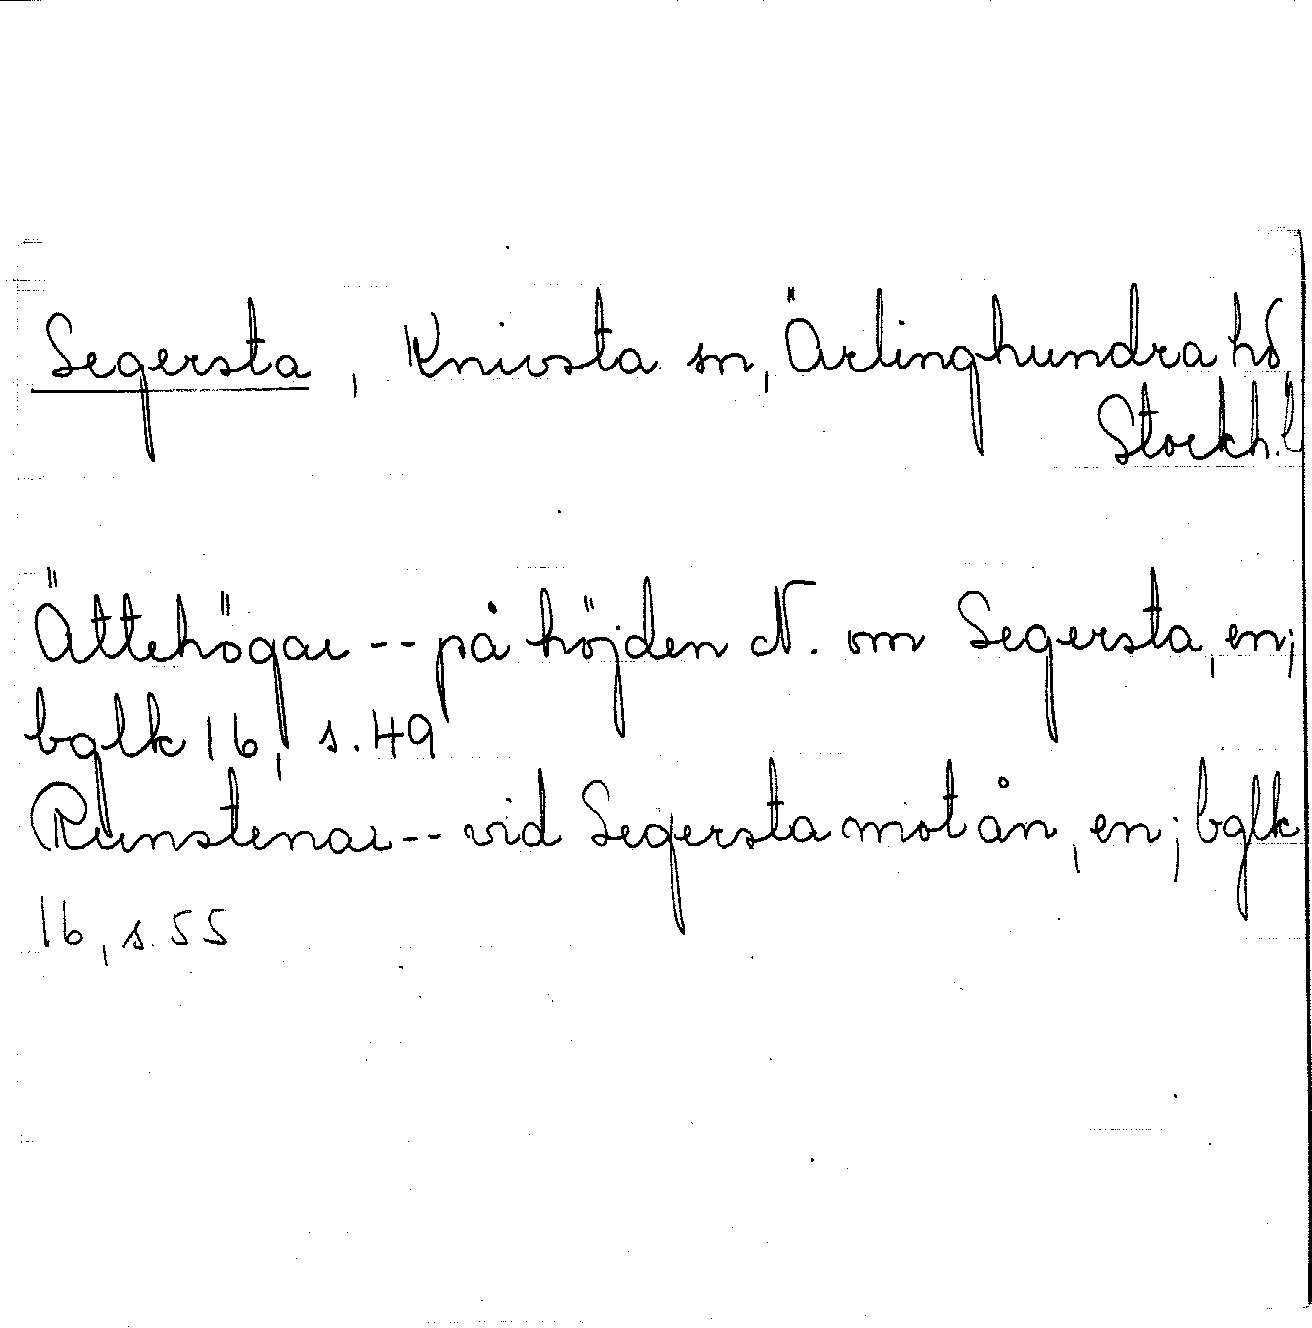 Segersta, Knivsta sn, Ärlinghundra hd,
Stockh. l
Ättehögar -- på höjden N. om Segersta, en;
bglk 16, s. 49
Runstenar -- vid Segersta mot ån, en; bglk
16, s. 55